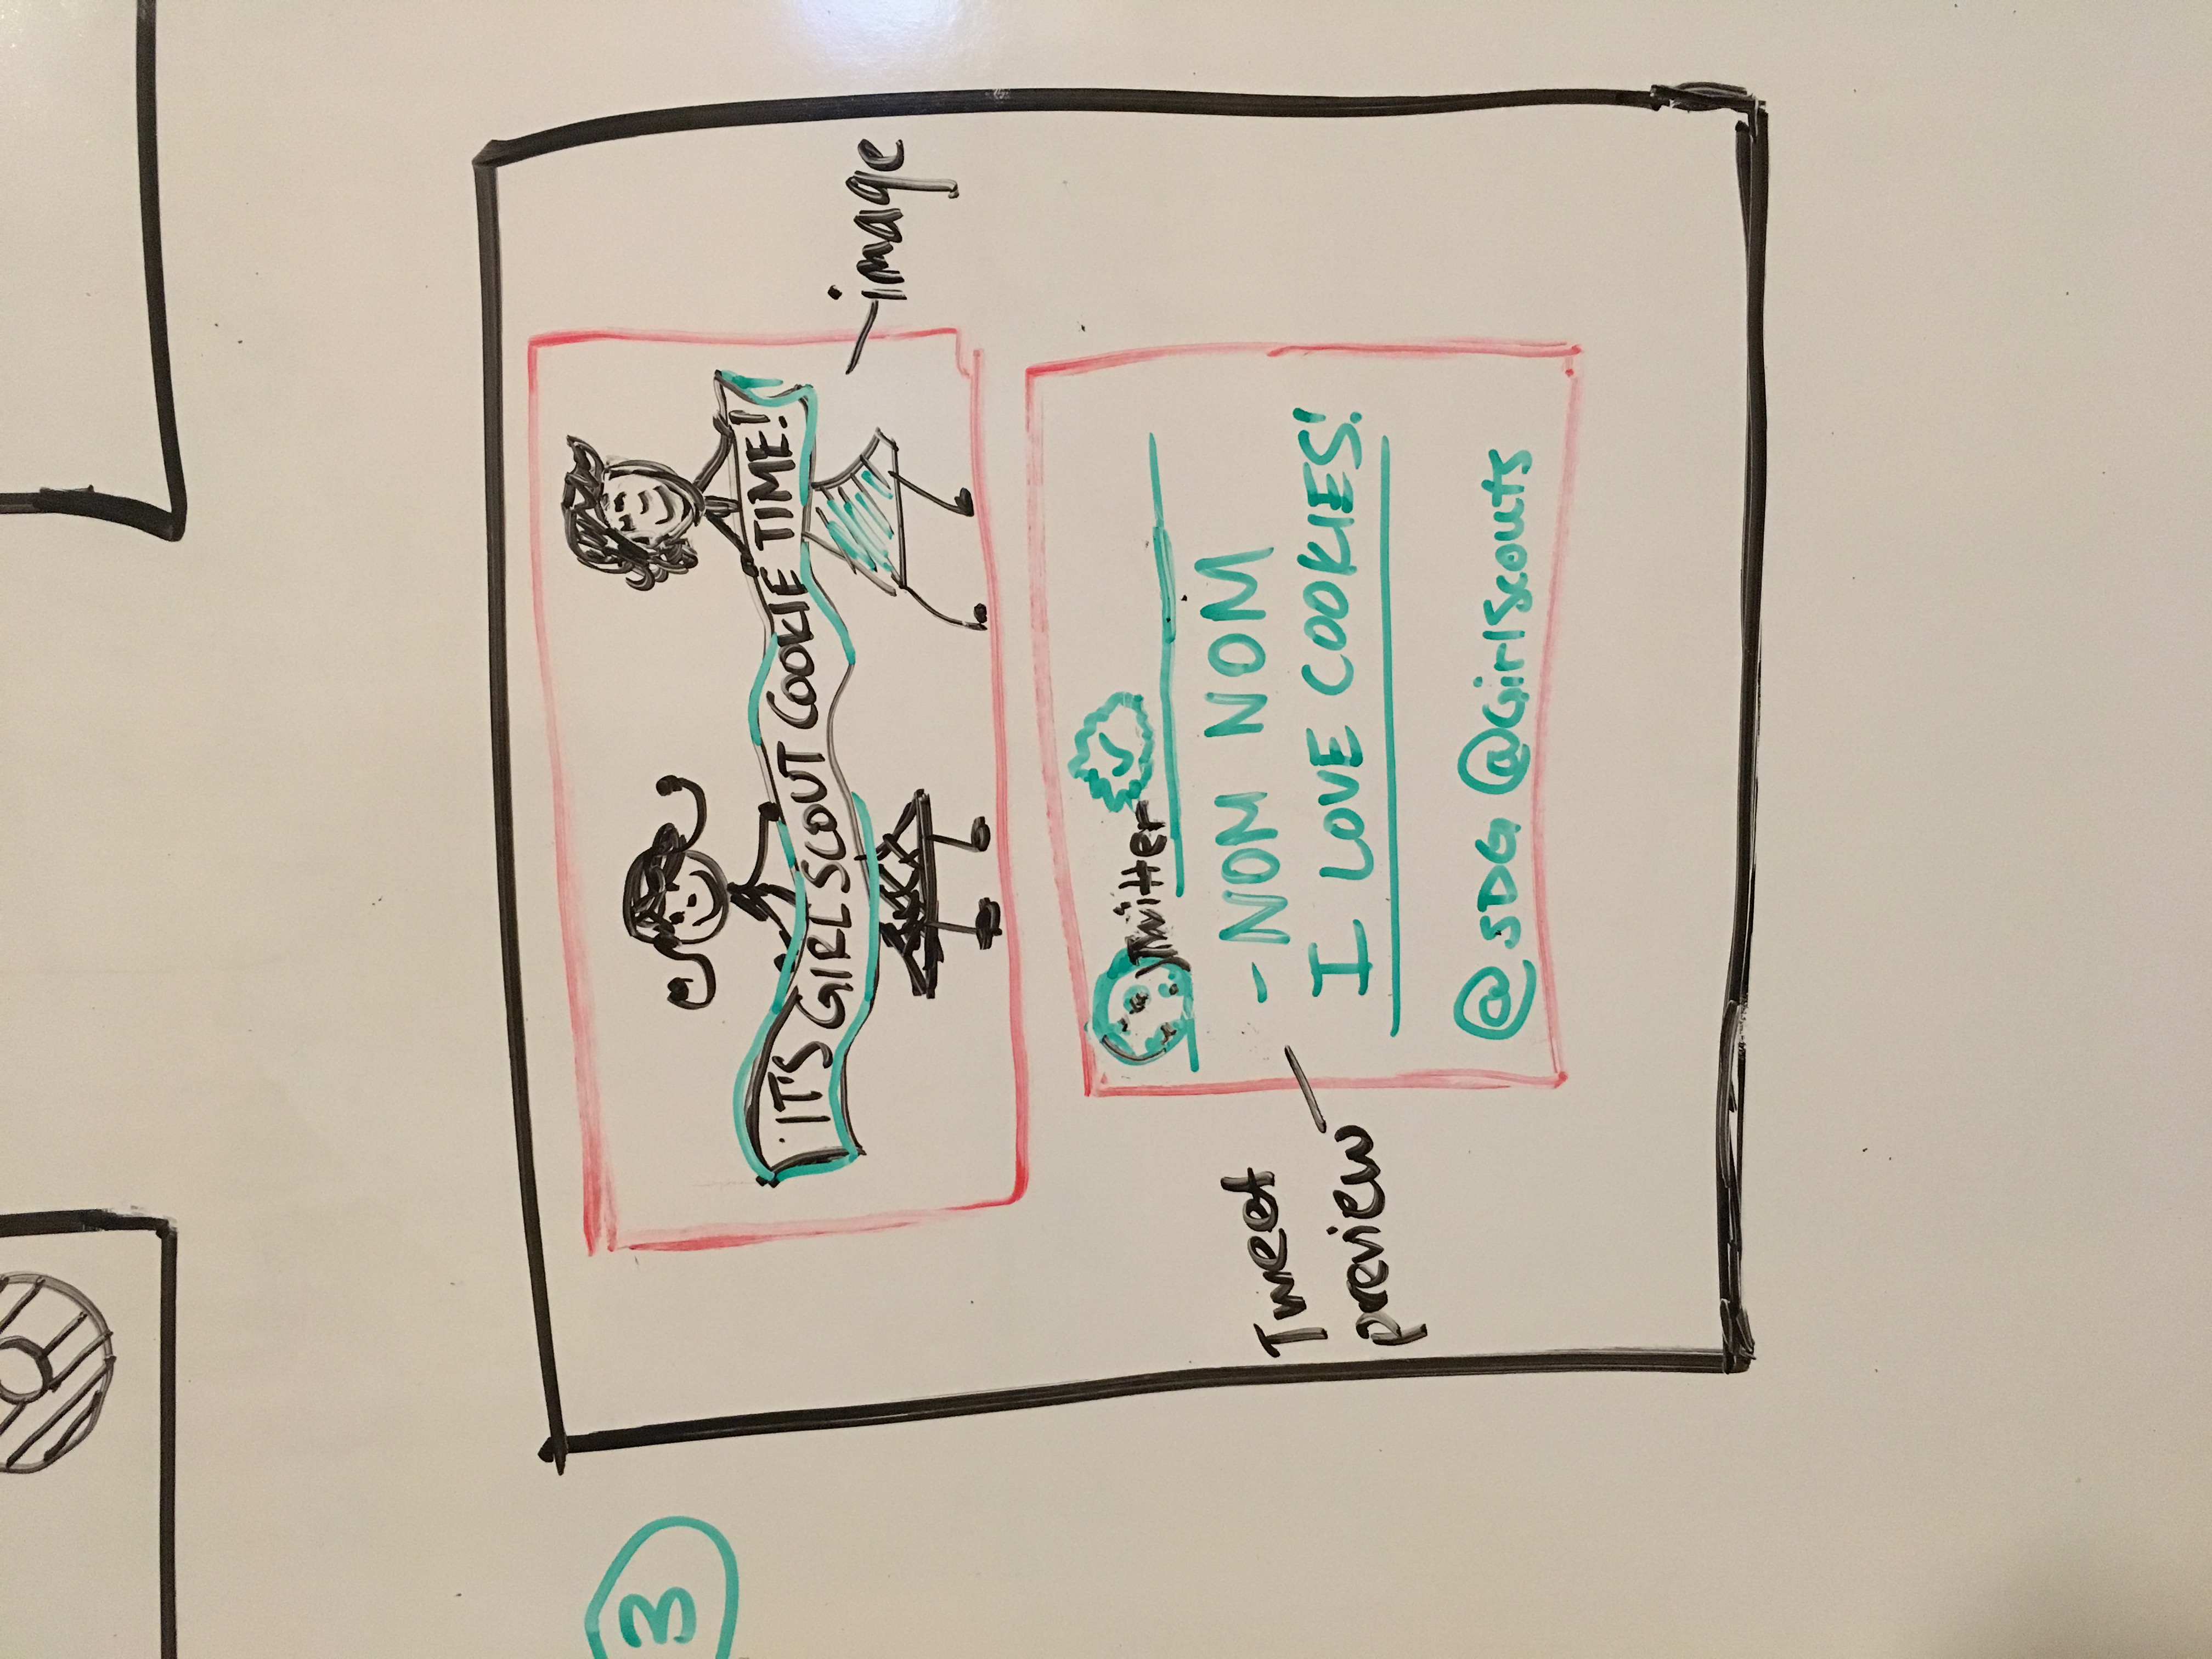 3
IT'S GIRL SCOUT COOKIE TIME!
image
Twitter
Tweet
preview
-NOM NOM
I LOVE COOKIES!
@SDG @GirlScouts